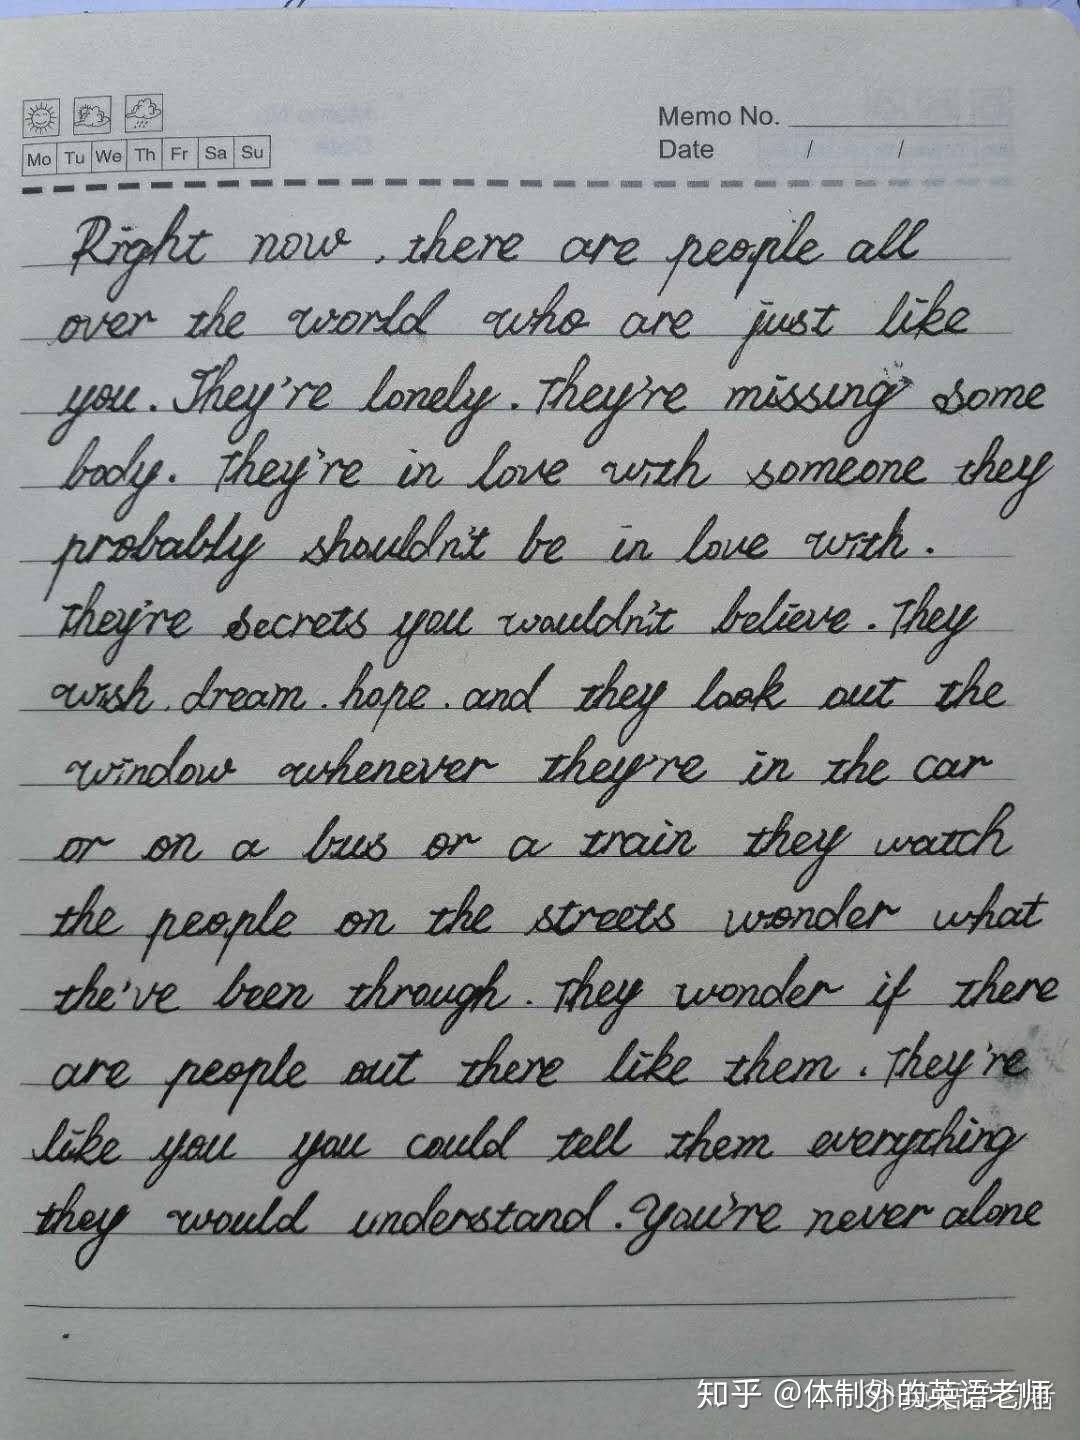 Memo No.
Mo Tu We Th Fr Sa Su
Date / /
Right now, there are people all
over the world who are just like
you. They're lonely. They're missing some
body. They're in love with someone they
probably shouldn't be in love with.
They're secrets you wouldn't believe. They
wish, dream, hope, and they look out the
window whenever they're in the car
or on a bus or a train they watch
the people on the streets wonder what
the've been through. They wonder if there
are people out there like them. They're
like you you could tell them everything
they would understand. You're never alone
.
知乎 @体制外的英语老师